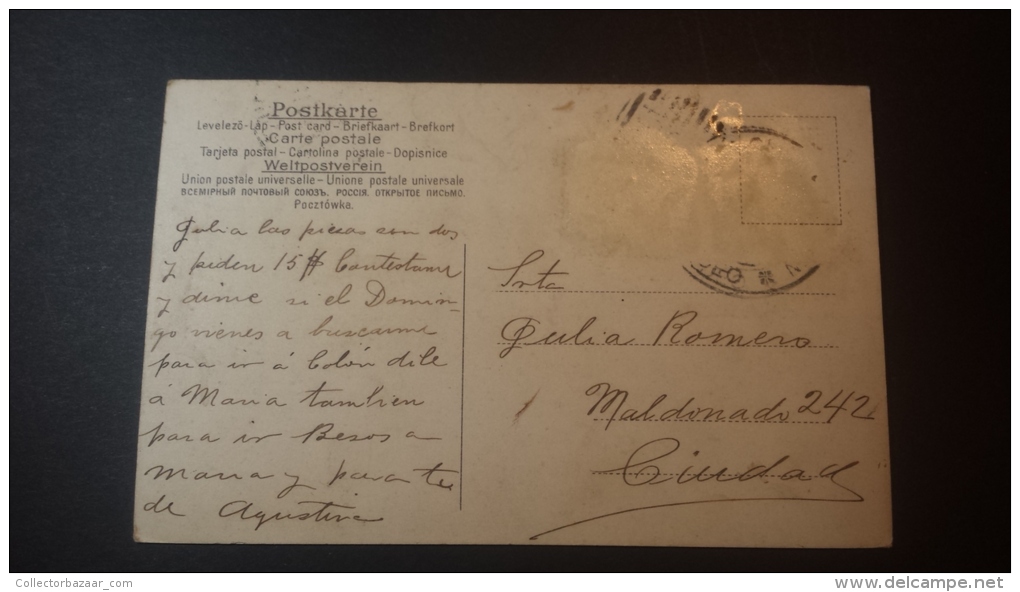 Postkarte
Levelező-Lap – Post card – Briefkaart – Brefkort
Carte postale
Tarjeta postal – Cartolina postale – Dopisnice
Weltpostverein
Union postale universelle – Unione postale universale
ВСЕМІРНЫЙ ПОЧТОВЫЙ СОЮЗЪ. РОССІЯ. ОТКРЫТОЕ ПИСЬМО.
Pocztówka.
Julia las piezas son dos
y piden 15 $ Contestame
y dime si el Domin-
go vienes a buscarme
para ir á Colón dile
á Maria tambien
para ir Besos a
Maria y para tu
de Agustina
Srta
Julia Romero
Maldonado 242
Ciudad
Collectorbazaar_com
www.delcampe.net